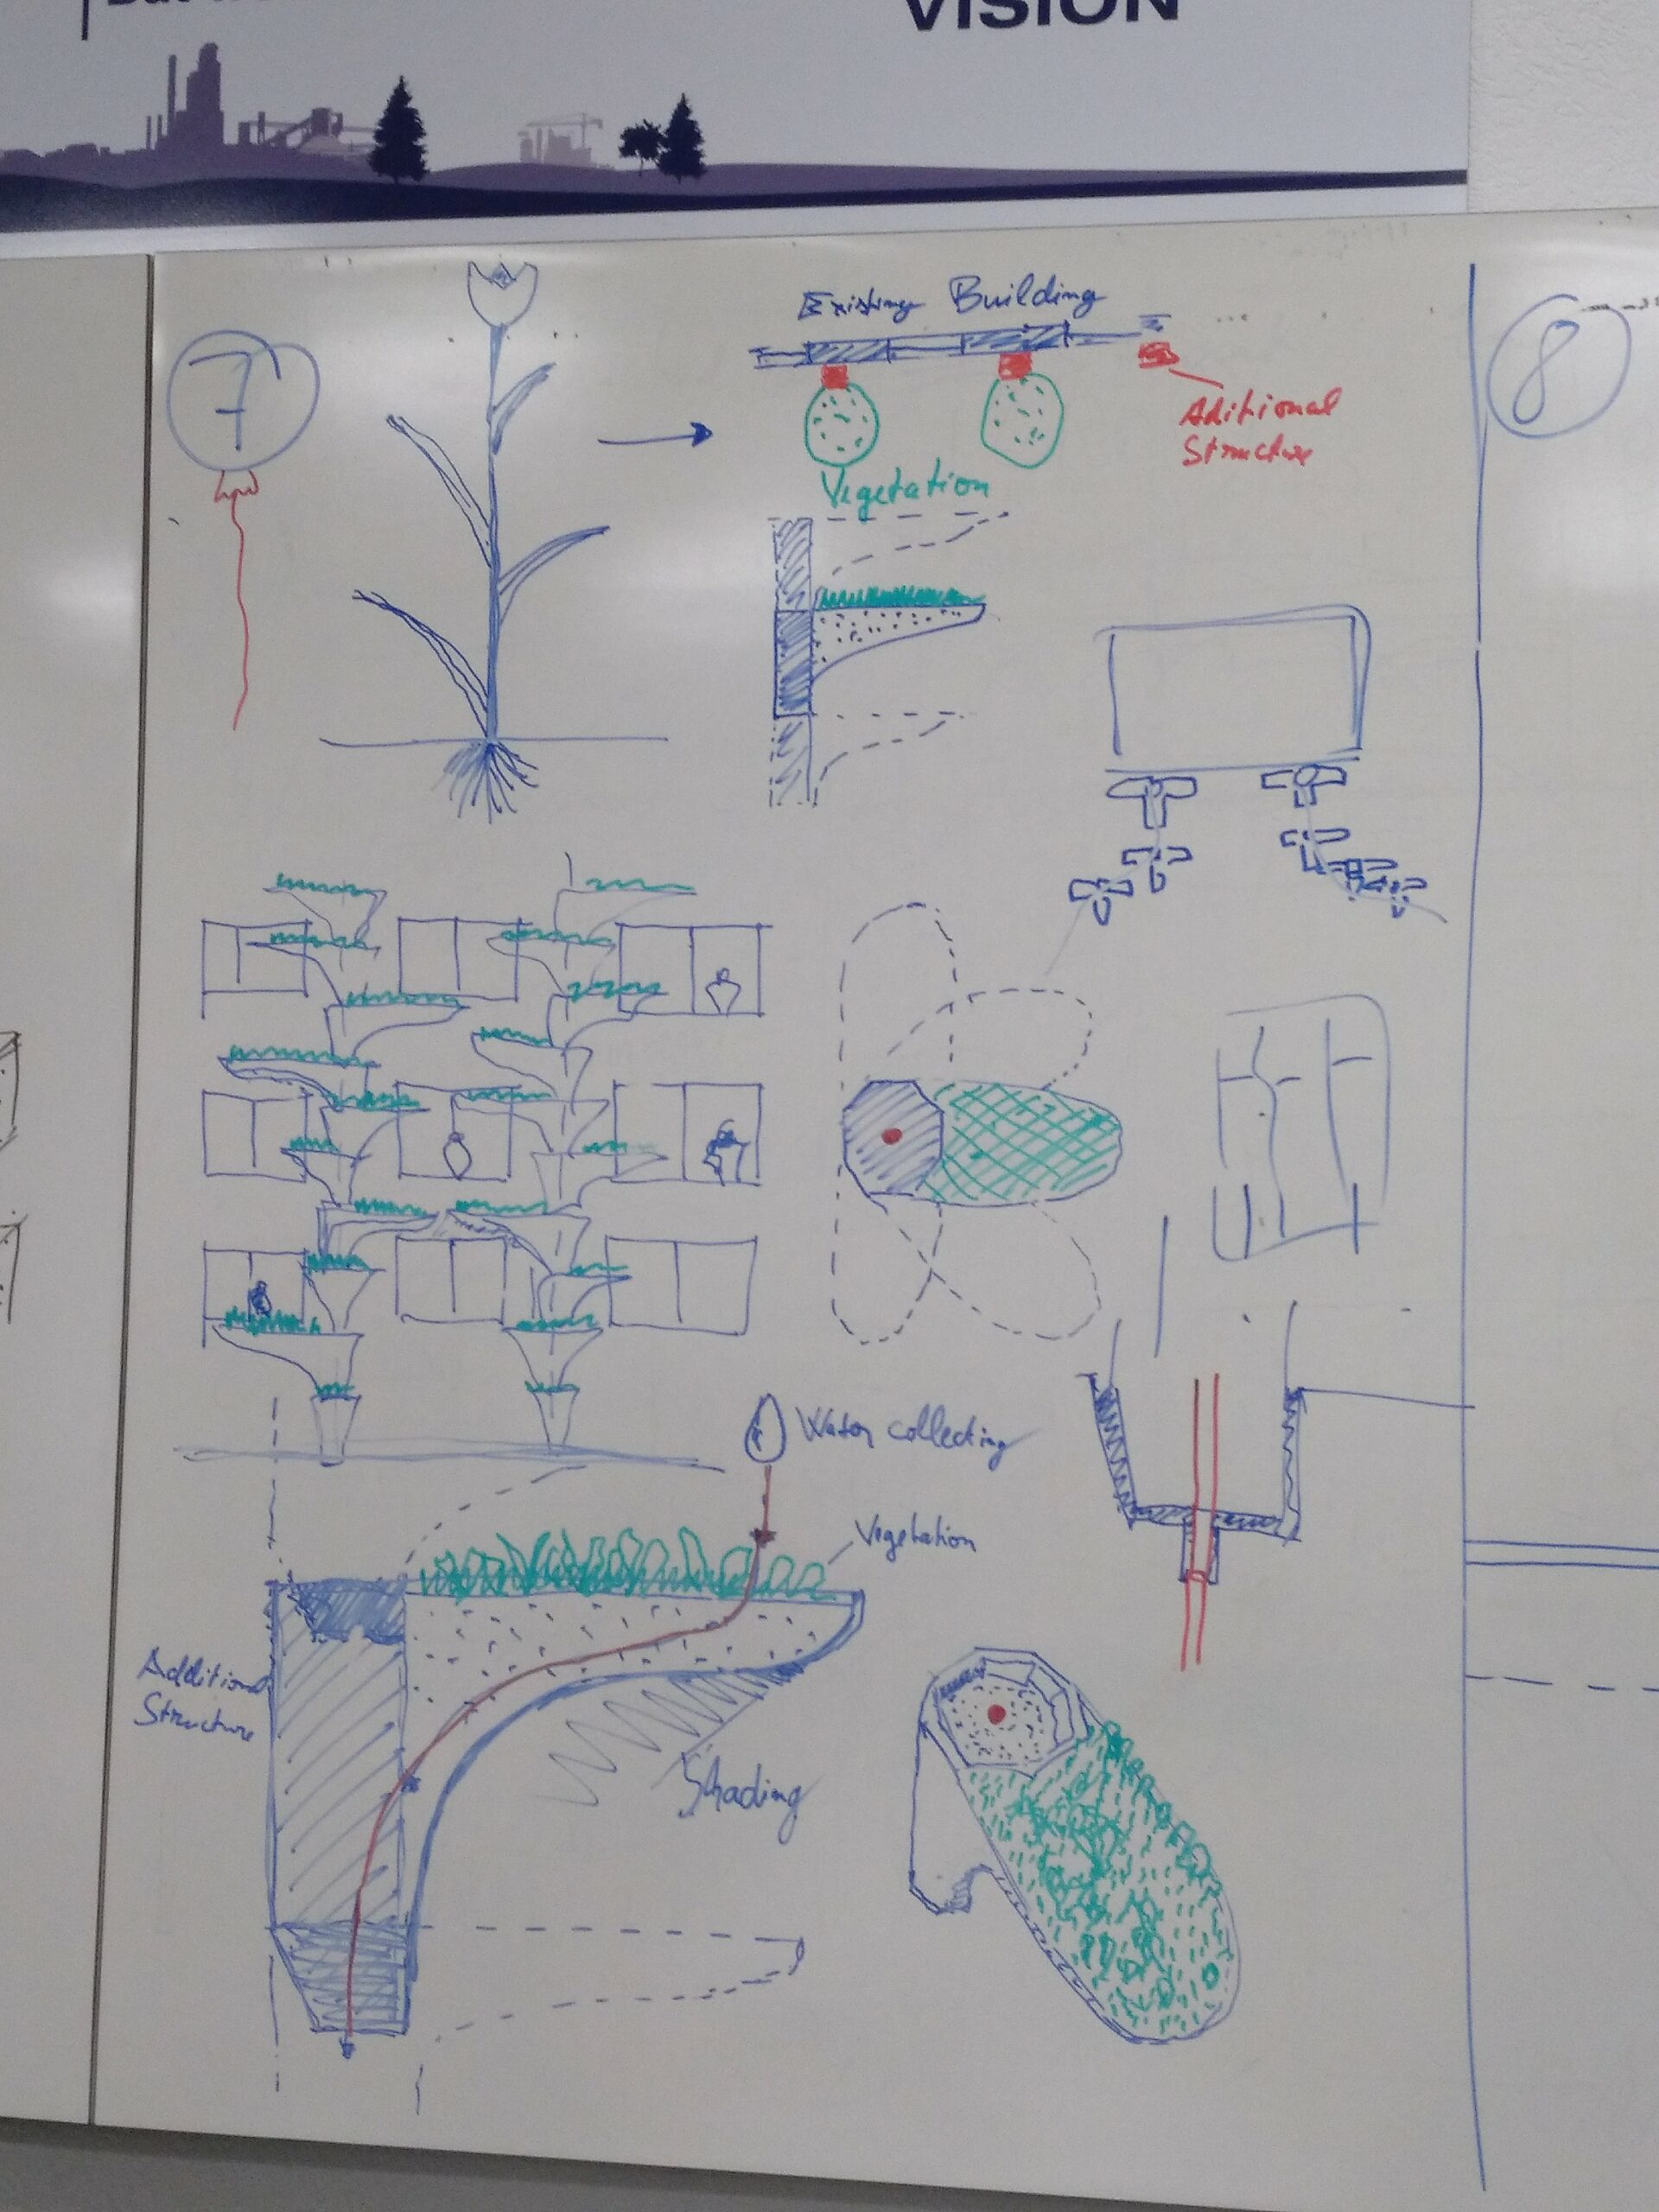 VISION
7
Existing Building
Aditional
Structure
Vegetation
8
Water collecting
Vegetation
Additional
Structure
Shading